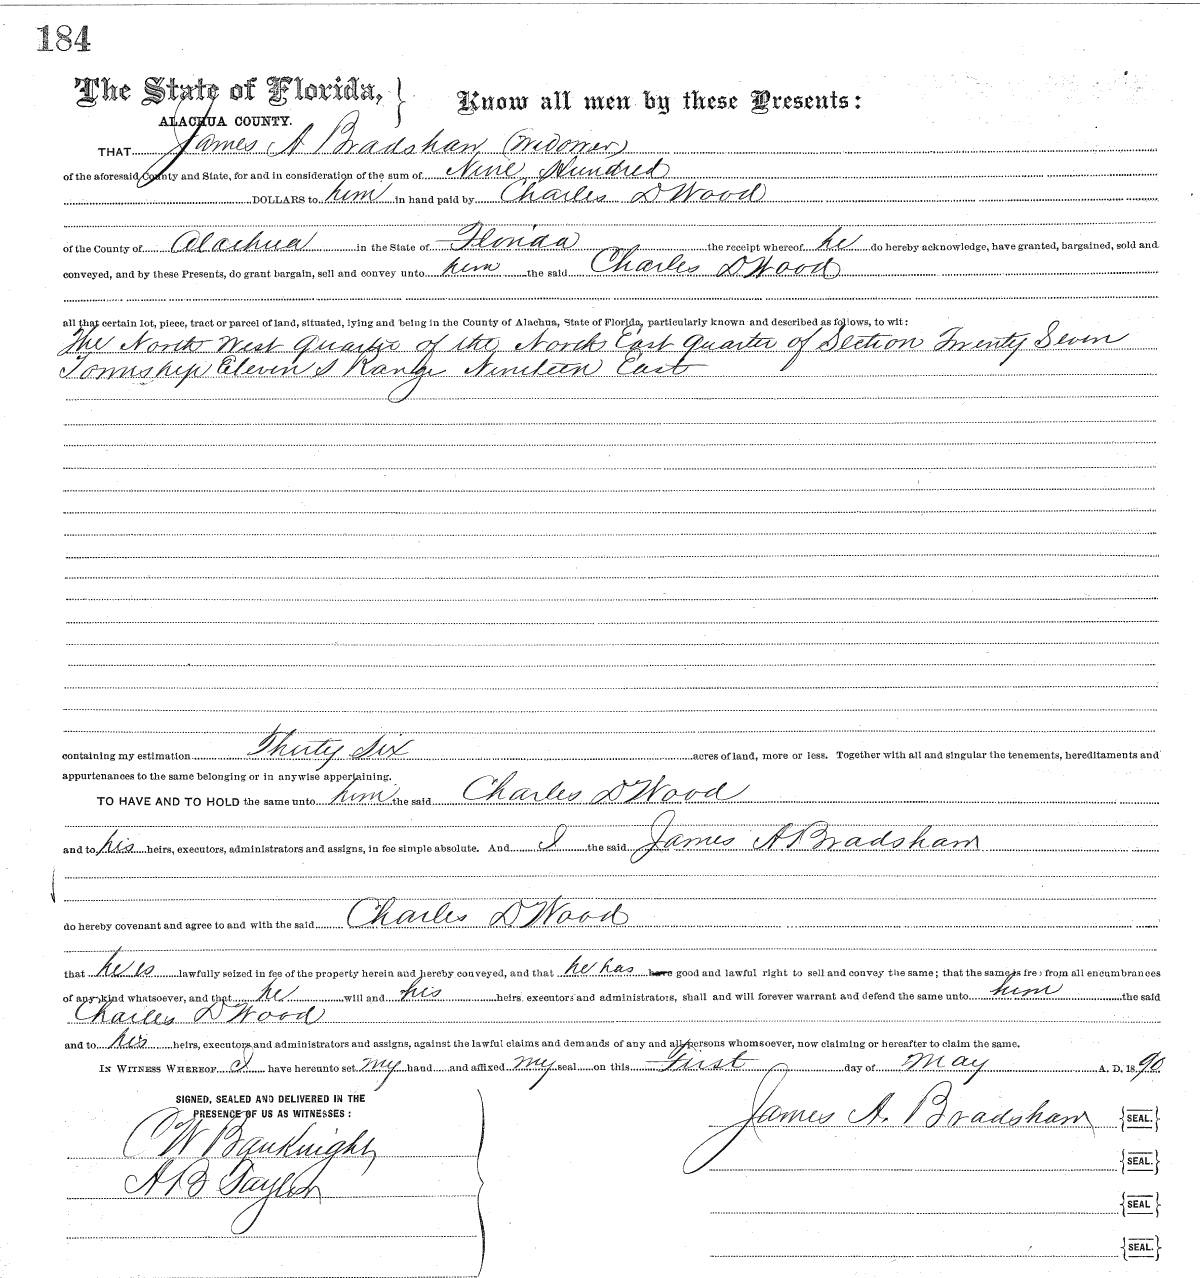 184
The State of Florida, } Know all men by these Presents:
ALACHUA COUNTY.
THAT James A Bradshaw (Widower)
of the aforesaid County and State, for and in consideration of the sum of Nine Hundred
DOLLARS to him in hand paid by Charles D Wood
of the County of Alachua in the State of Florida the receipt whereof he do hereby acknowledge, have granted, bargained, sold and
conveyed, and by these Presents, do grant bargain, sell and convey unto him the said Charles D Wood
all that certain lot, piece, tract or parcel of land, situated, lying and being in the County of Alachua, State of Florida, particularly known and described as follows, to wit:
The North West Quarter of the North East Quarter of Section Twenty Seven
Township Eleven S Range Nineteen East
containing my estimation Thirty Six acres of land, more or less. Together with all and singular the tenements, hereditaments and
appurtenances to the same belonging or in anywise appertaining.
TO HAVE AND TO HOLD the same unto him the said Charles D Wood
and to his heirs, executors, administrators and assigns, in fee simple absolute. And I the said James A Bradshaw
do hereby covenant and agree to and with the said Charles D Wood
that he is lawfully seized in fee of the property herein and hereby conveyed, and that he has have good and lawful right to sell and convey the same; that the same is free from all encumbrances
of any kind whatsoever, and that he will and his heirs executors and administrators, shall and will forever warrant and defend the same unto him the said
Charles D Wood
and to his heirs, executors and administrators and assigns, against the lawful claims and demands of any and all persons whomsoever, now claiming or hereafter to claim the same.
IN WITNESS WHEREOF I have hereunto set my hand and affixed my seal on this First day of May A, D, 1890
SIGNED, SEALED AND DELIVERED IN THE
PRESENCE OF US AS WITNESSES:
James A. Bradshaw {SEAL.}
C W Bauknight
{SEAL.}
A B Taylor
{SEAL}
{SEAL.}